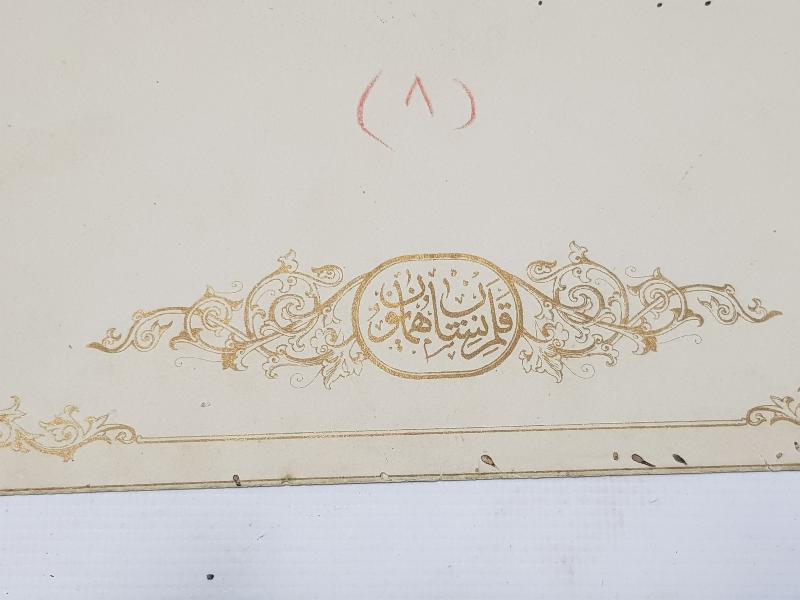 (٨)
قلمرستان همايون